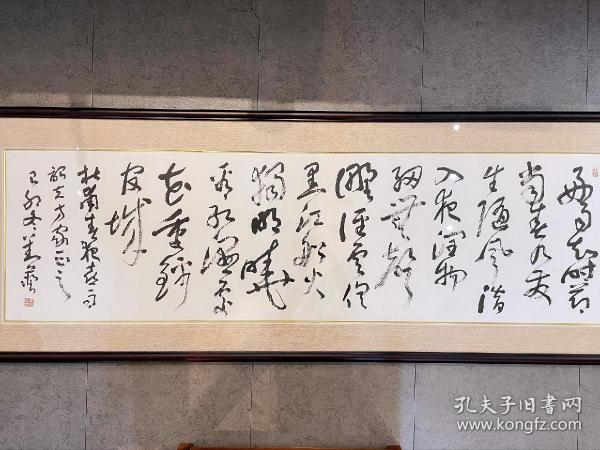 好雨知时节
当春乃发
生随风潜
入夜润物
细无声
野径云俱
黑江船火
独明晓
看红湿处
花重锦
官城
杜甫春夜喜雨
方家正之
己卯
孔夫子旧书网
www.kongfz.com